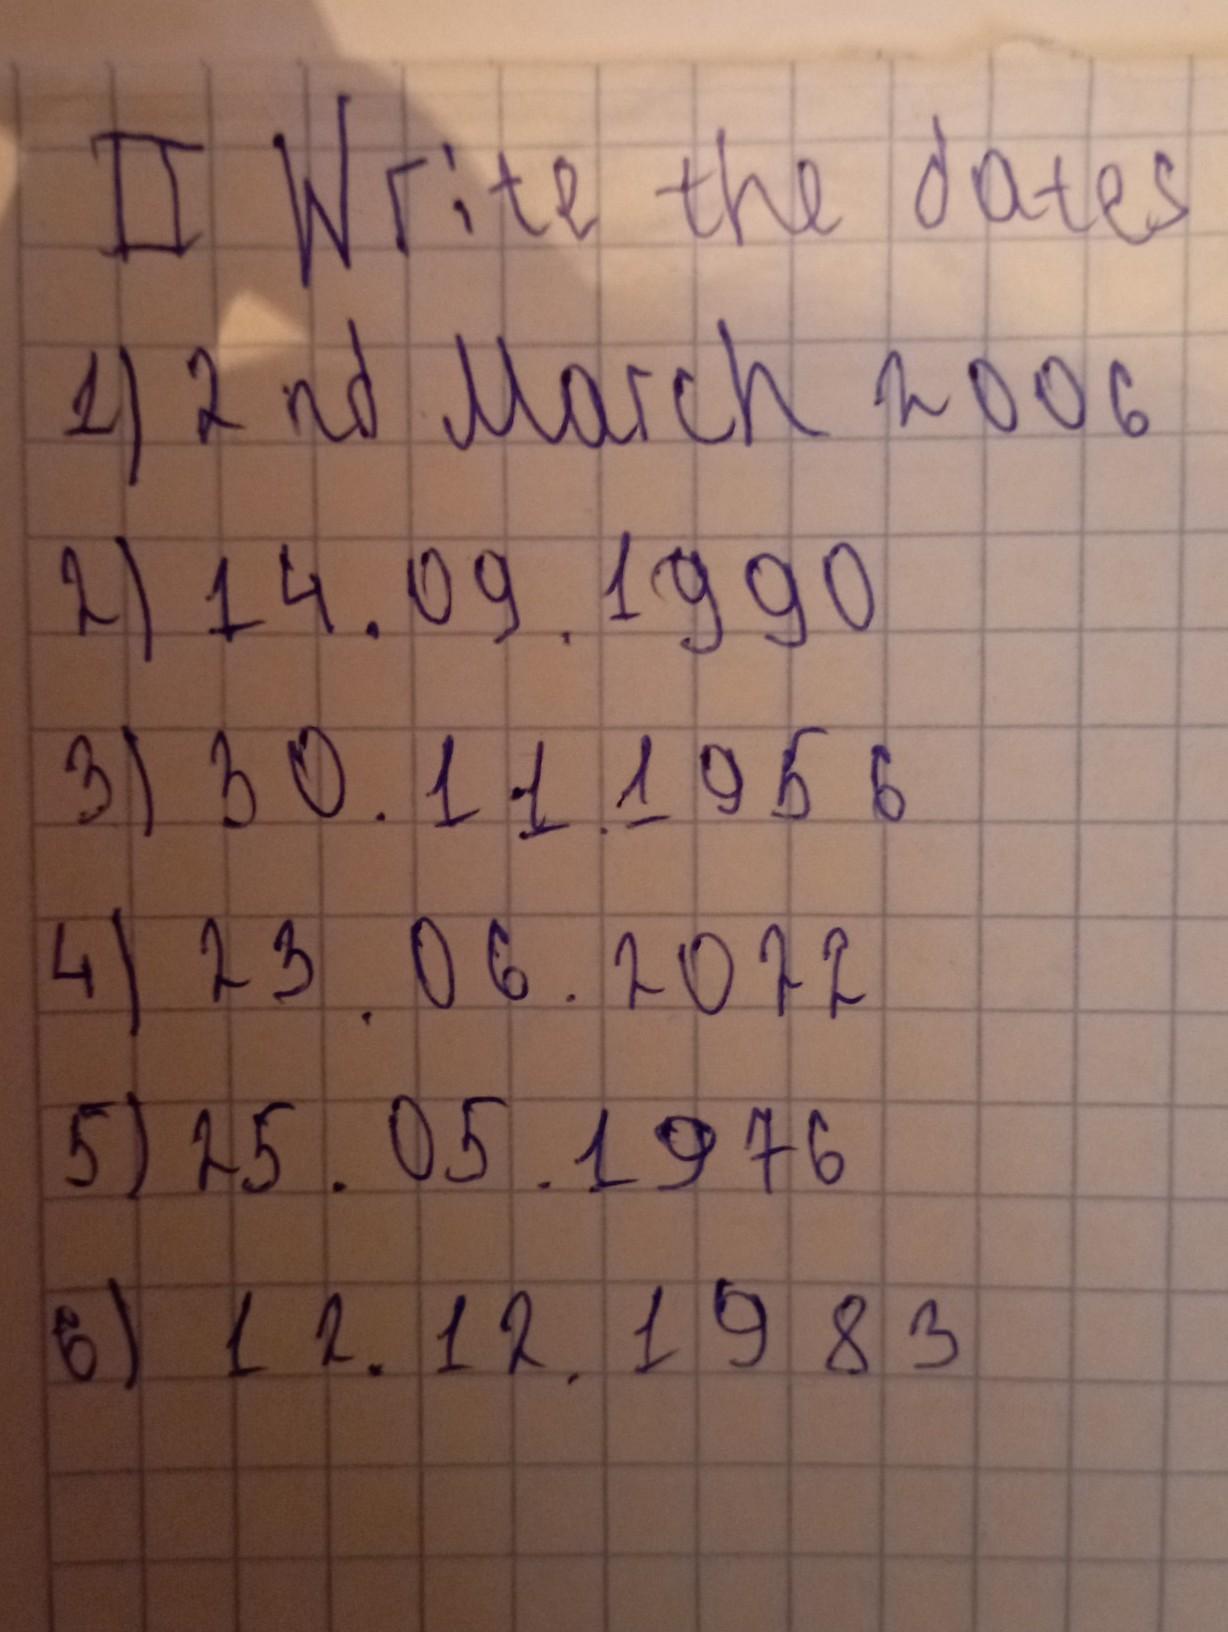 II Write the dates
1) 2nd March 2006
2) 14.09.1990
3) 30.11.1956
4) 23.06.2022
5) 25.05.1976
6) 12.12.1983